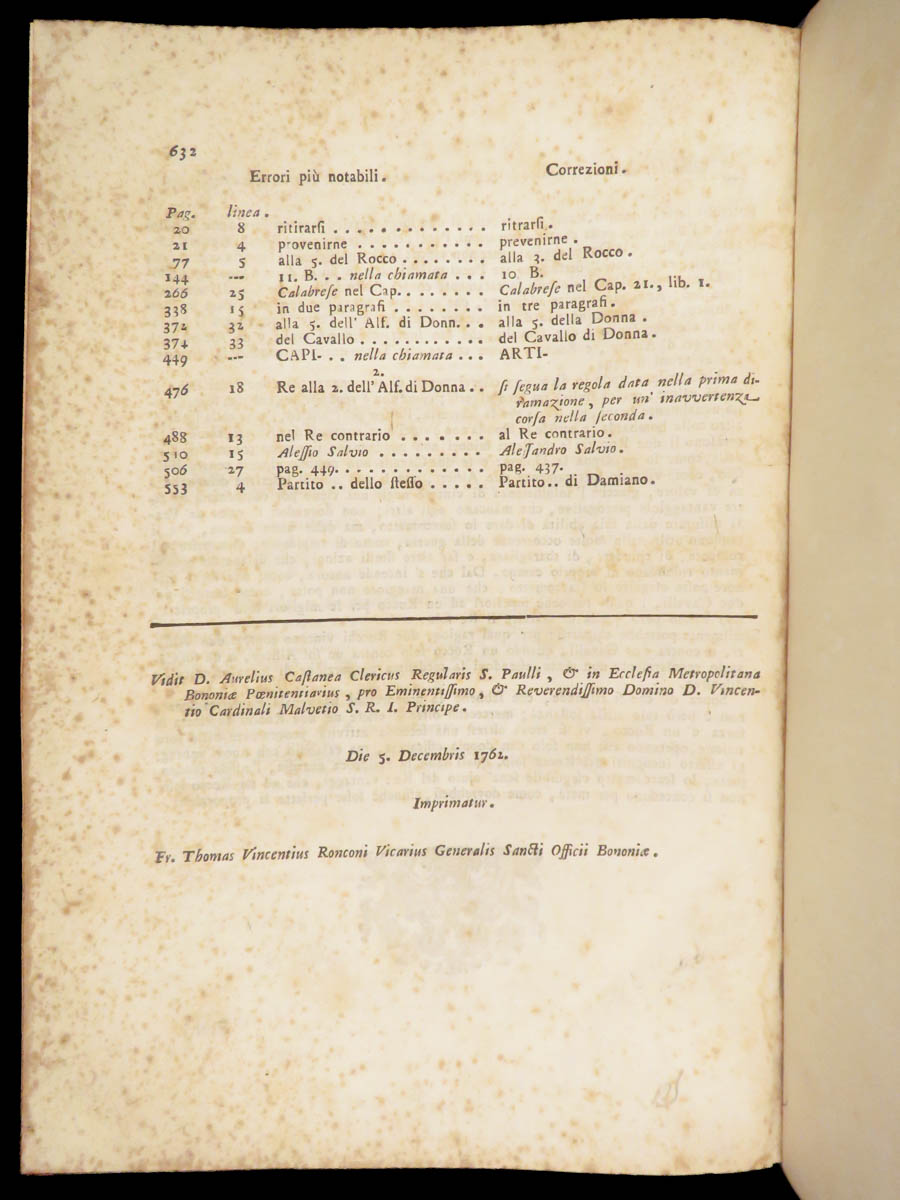 632
Errori più notabili. Correzioni.
Pag. linea.
20 8 ritirarſi . . . . . . . . . . . . . ritrarſi.
21 4 provenirne . . . . . . . . . . . prevenirne.
77 5 alla 5. del Rocco . . . . . . . . alla 3. del Rocco.
144 --- 11. B. . . nella chiamata . . . 10 B.
266 25 Calabreſe nel Cap. . . . . . . . Calabreſe nel Cap. 21., lib. 1.
338 15 in due paragrafi . . . . . . . . in tre paragrafi.
372 32 alla 5. dell' Alf. di Donn. . . alla 5. della Donna.
374 33 del Cavallo . . . . . . . . . . . del Cavallo di Donna.
449 --- CAPI- . . nella chiamata . . . ARTI-
2.
476 18 Re alla 2. dell' Alf. di Donna . . ſi ſegua la regola data nella prima di-
ramazione, per un' inavvertenza
corſa nella ſeconda.
488 13 nel Re contrario . . . . . . . al Re contrario.
510 15 Aleſſio Salvio . . . . . . . . . Aleſandro Salvio.
506 27 pag. 449. . . . . . . . . . . . . pag. 437.
553 4 Partito . . dello ſteſſo . . . . . Partito . . di Damiano.
Vidit D. Aurelius Caſtanea Clericus Regularis S. Paulli, & in Eccleſia Metropolitana
Bononiæ Pœnitentiarius, pro Eminentiſſimo, & Reverendiſſimo Domino D. Vincen-
tio Cardinali Malvetio S. R. I. Principe.
Die 5. Decembris 1762.
Imprimatur.
Fr. Thomas Vincentius Ronconi Vicarius Generalis Sancti Officii Bononiæ.